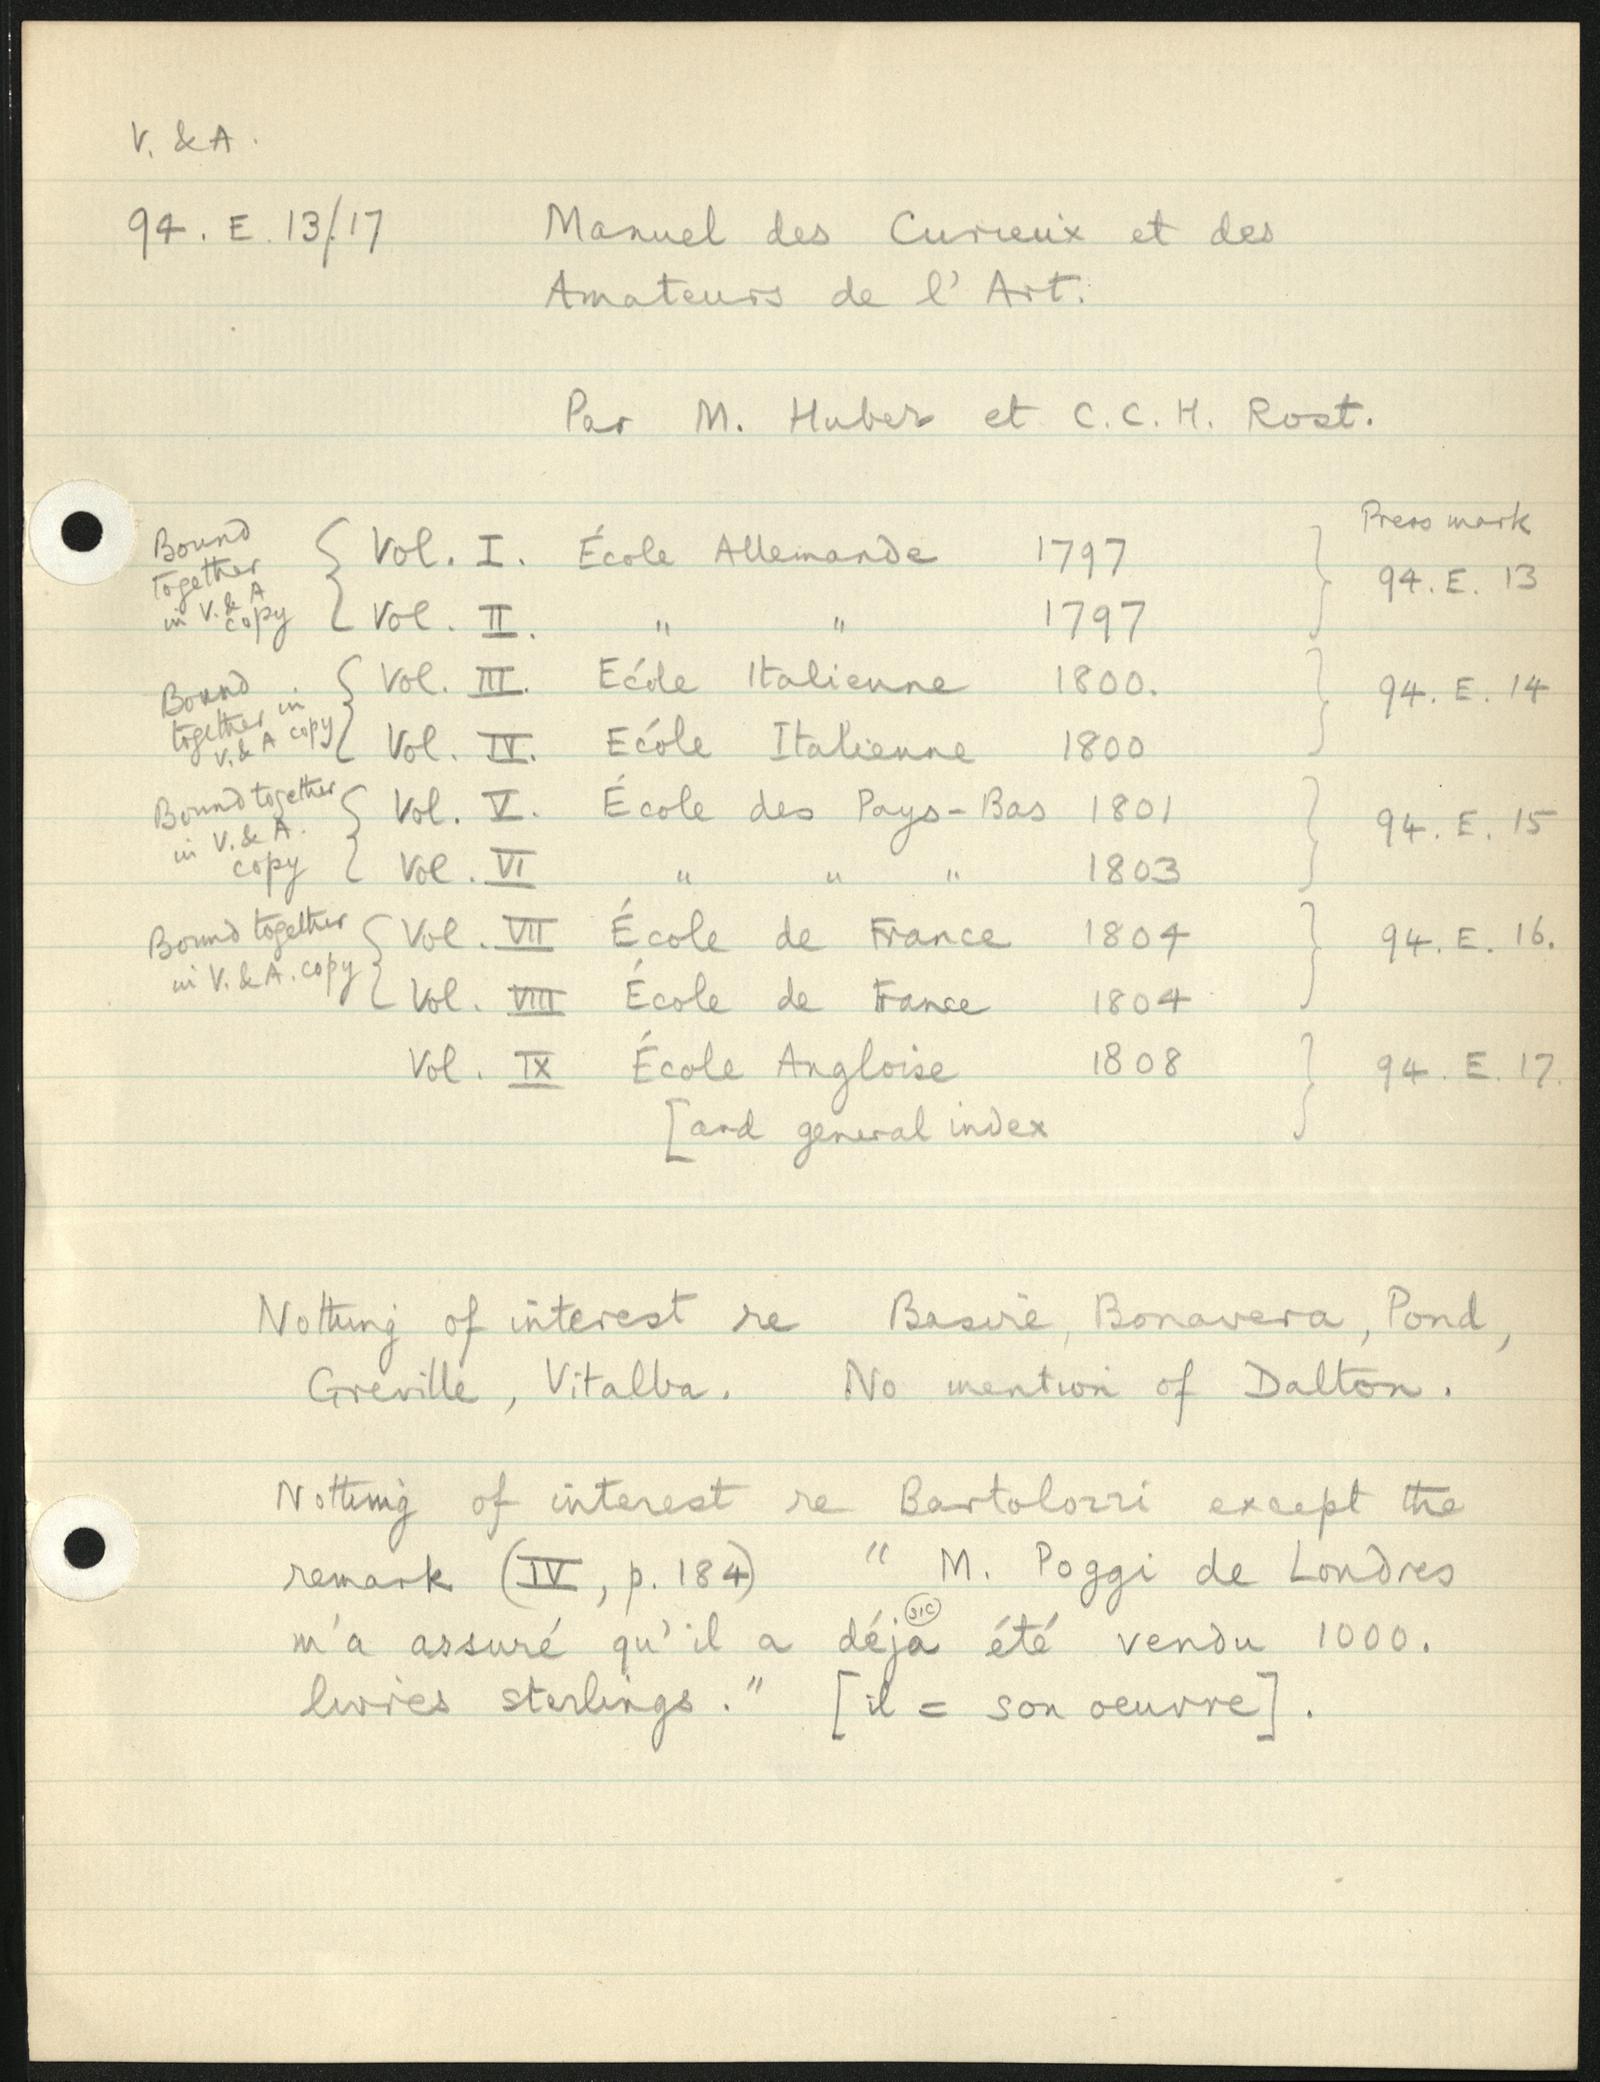 V. & A.
94. E. 13/17 Manuel des Curieux et des
Amateurs de l'Art.
Par M. Huber et C. C. H. Rost.
Press mark
Bound together in V. & A copy { Vol. I. École Allemande 1797 } 94. E. 13
Vol. II. " " 1797
Bound together in V. & A copy { Vol. III. École Italienne 1800. } 94. E. 14
Vol. IV. École Italienne 1800
Bound together in V. & A. copy { Vol. V. École des Pays-Bas 1801 } 94. E. 15
Vol. VI " " " 1803
Bound together in V. & A. copy { Vol. VII École de France 1804 } 94. E. 16.
Vol. VIII École de France 1804
Vol. IX École Angloise 1808 } 94. E. 17.
[and general index
Nothing of interest re Basire, Bonavera, Pond,
Greville, Vitalba. No mention of Dalton.
Nothing of interest re Bartolozzi except the
remark (IV, p. 184) " M. Poggi de Londres
m'a assuré qu'il a déja (sic) été vendu 1000.
livres sterlings." [il = son oeuvre].